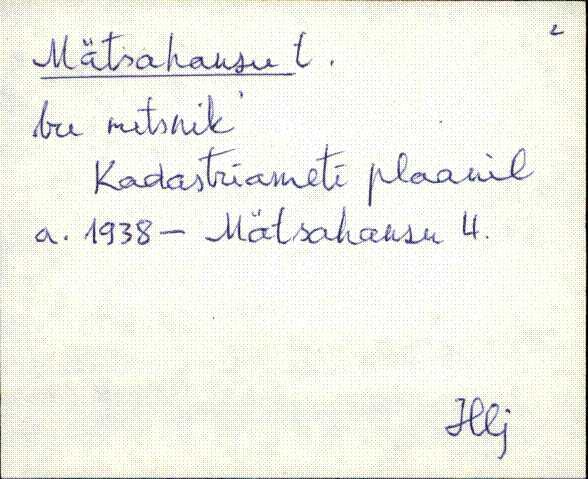 2
Mätsahansu t.
bu metsnik'
Kadastriameti plaanil
a. 1938 – Mätsahansu 4.
Hlj